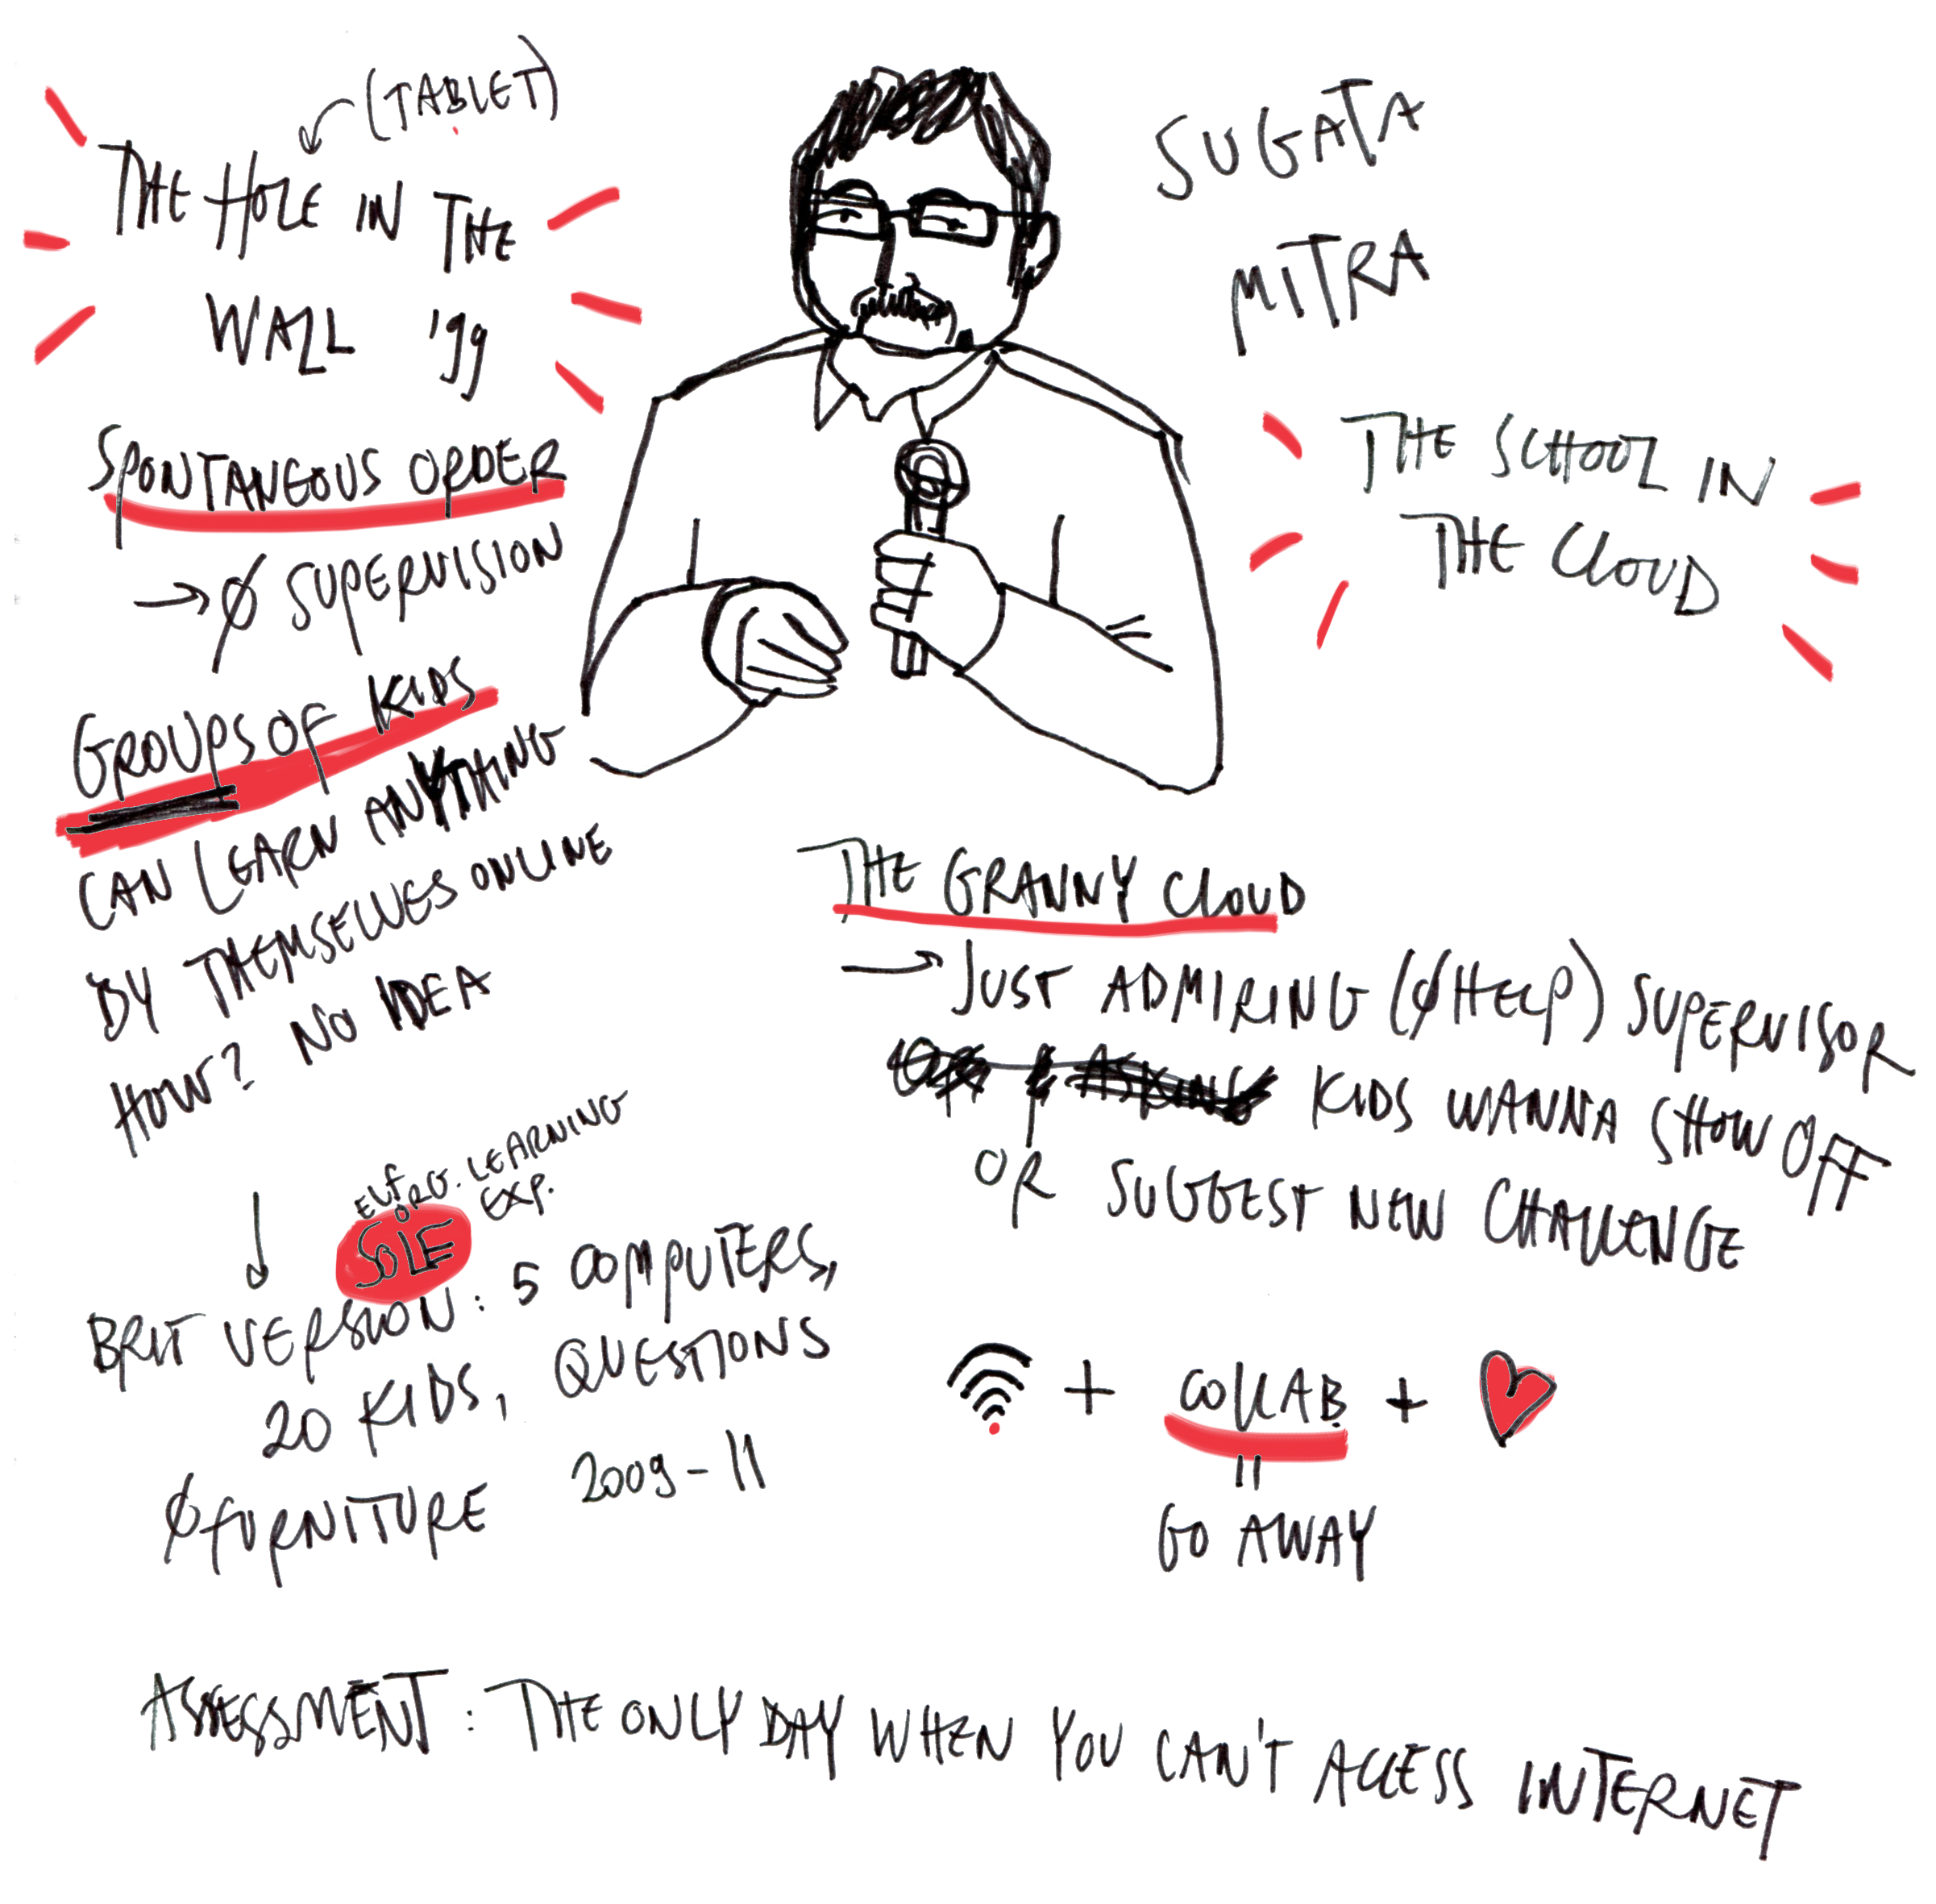 (TABLET)
THE HOLE IN THE
WALL '99
SPONTANEOUS ORDER
→ Ø SUPERVISION
GROUPS OF KIDS
CAN LEARN ANYTHING
BY THEMSELVES ONLINE
HOW? NO IDEA
ORG. LEARNING
EXP.
SOLE
BRIT VERSION: 5 COMPUTERS,
20 KIDS, QUESTIONS
Ø FURNITURE 2009-11
SUGATA
MITRA
THE SCHOOL IN
THE CLOUD
THE GRANNY CLOUD
→ JUST ADMIRING (Ø HELP) SUPERVISOR
KIDS WANNA SHOW OFF
OR SUGGEST NEW CHALLENGE
+ COLLAB +
=
GO AWAY
ASSESSMENT: THE ONLY DAY WHEN YOU CAN'T ACCESS INTERNET